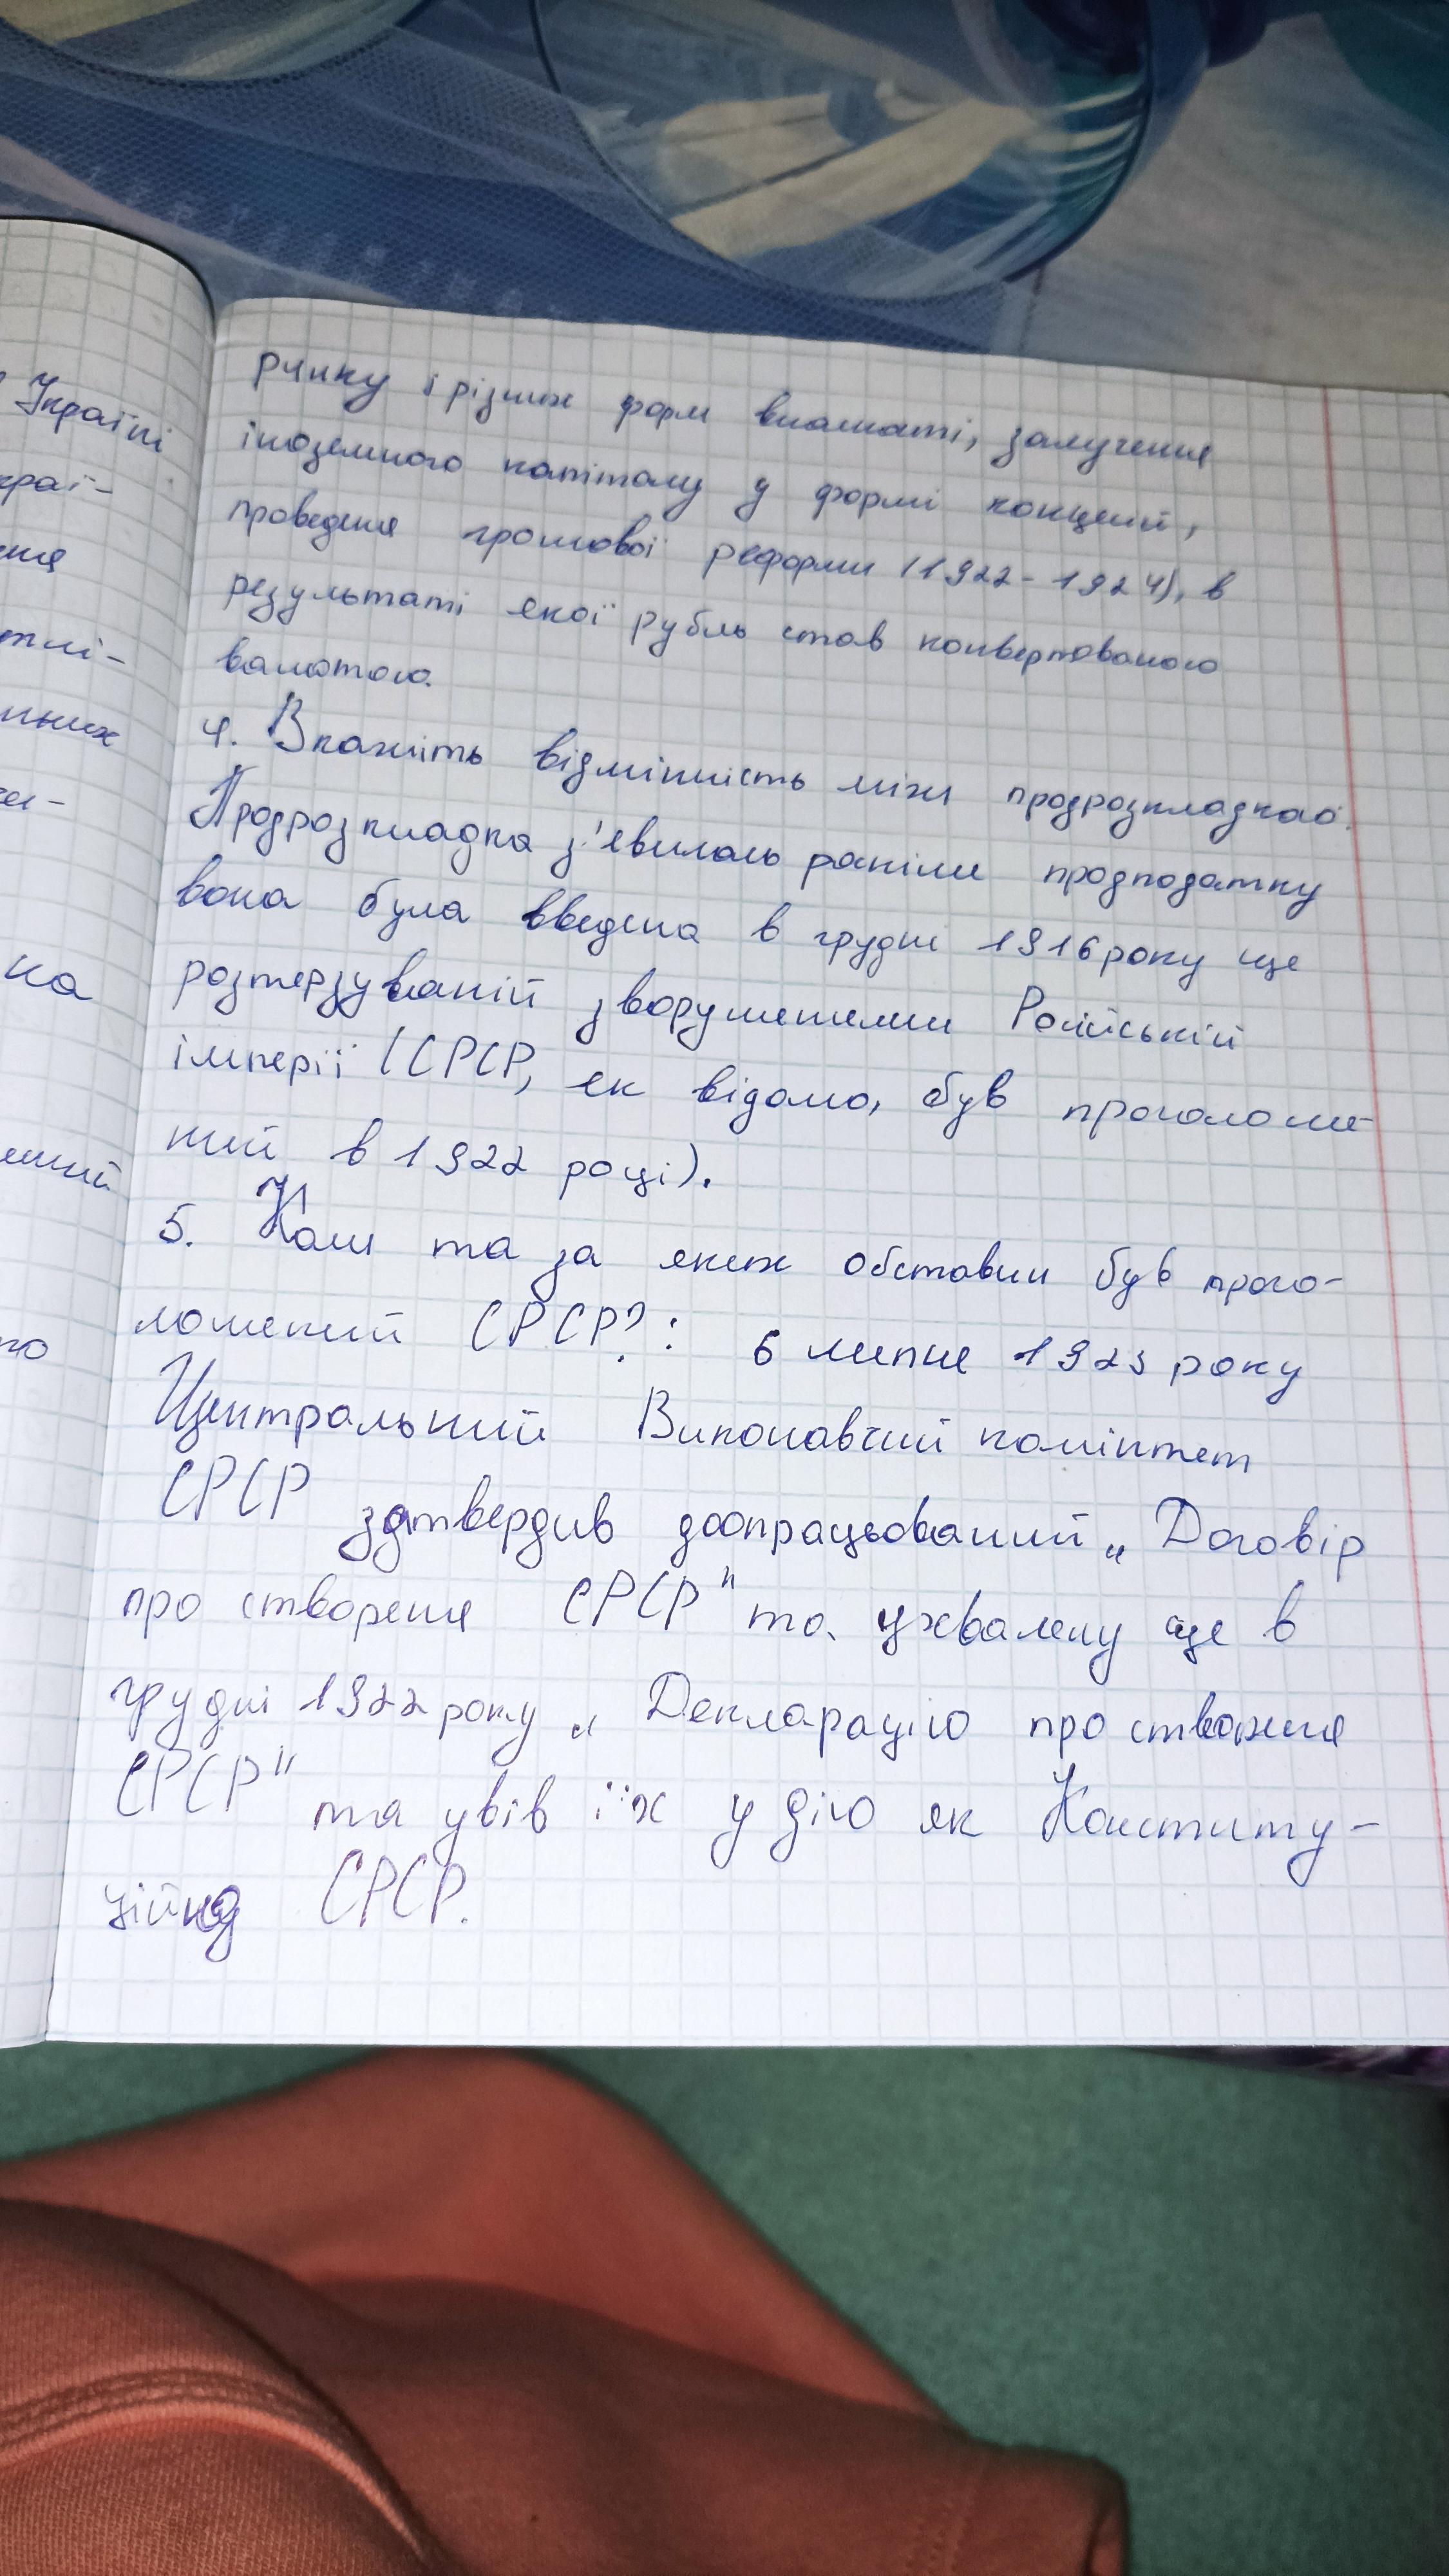 Україні
краї-
ння
тні-
них
ка
ний
го
ринку і різних форм власності, залучення
іноземного капіталу у формі концесій,
проведеня грошової реформи (1922-1924), в
результаті якої рубль став конвертованою
валютою.
4. Вкажіть відмінність між продрозкладкаю.
Продрозкладка з'явилась раніше продподатку
вона була введена в грудні 1916 року ще
розтерзуваній зворушеннями Російській
імперії (СРСР, як відомо, був проголоше
ний в 1922 році).
5. Коли та за яких обставин був прого-
лошений СРСР?: 6 липня 1923 року
Центральний Виконавчий комінтет
СРСР затвердив доопрацьований „Договір
про створеня СРСР" та ухвалену ще в
грудні 1922 року „Декларацію про створеня
СРСР" та увів їх у дію як Конститу-
ційну СРСР.